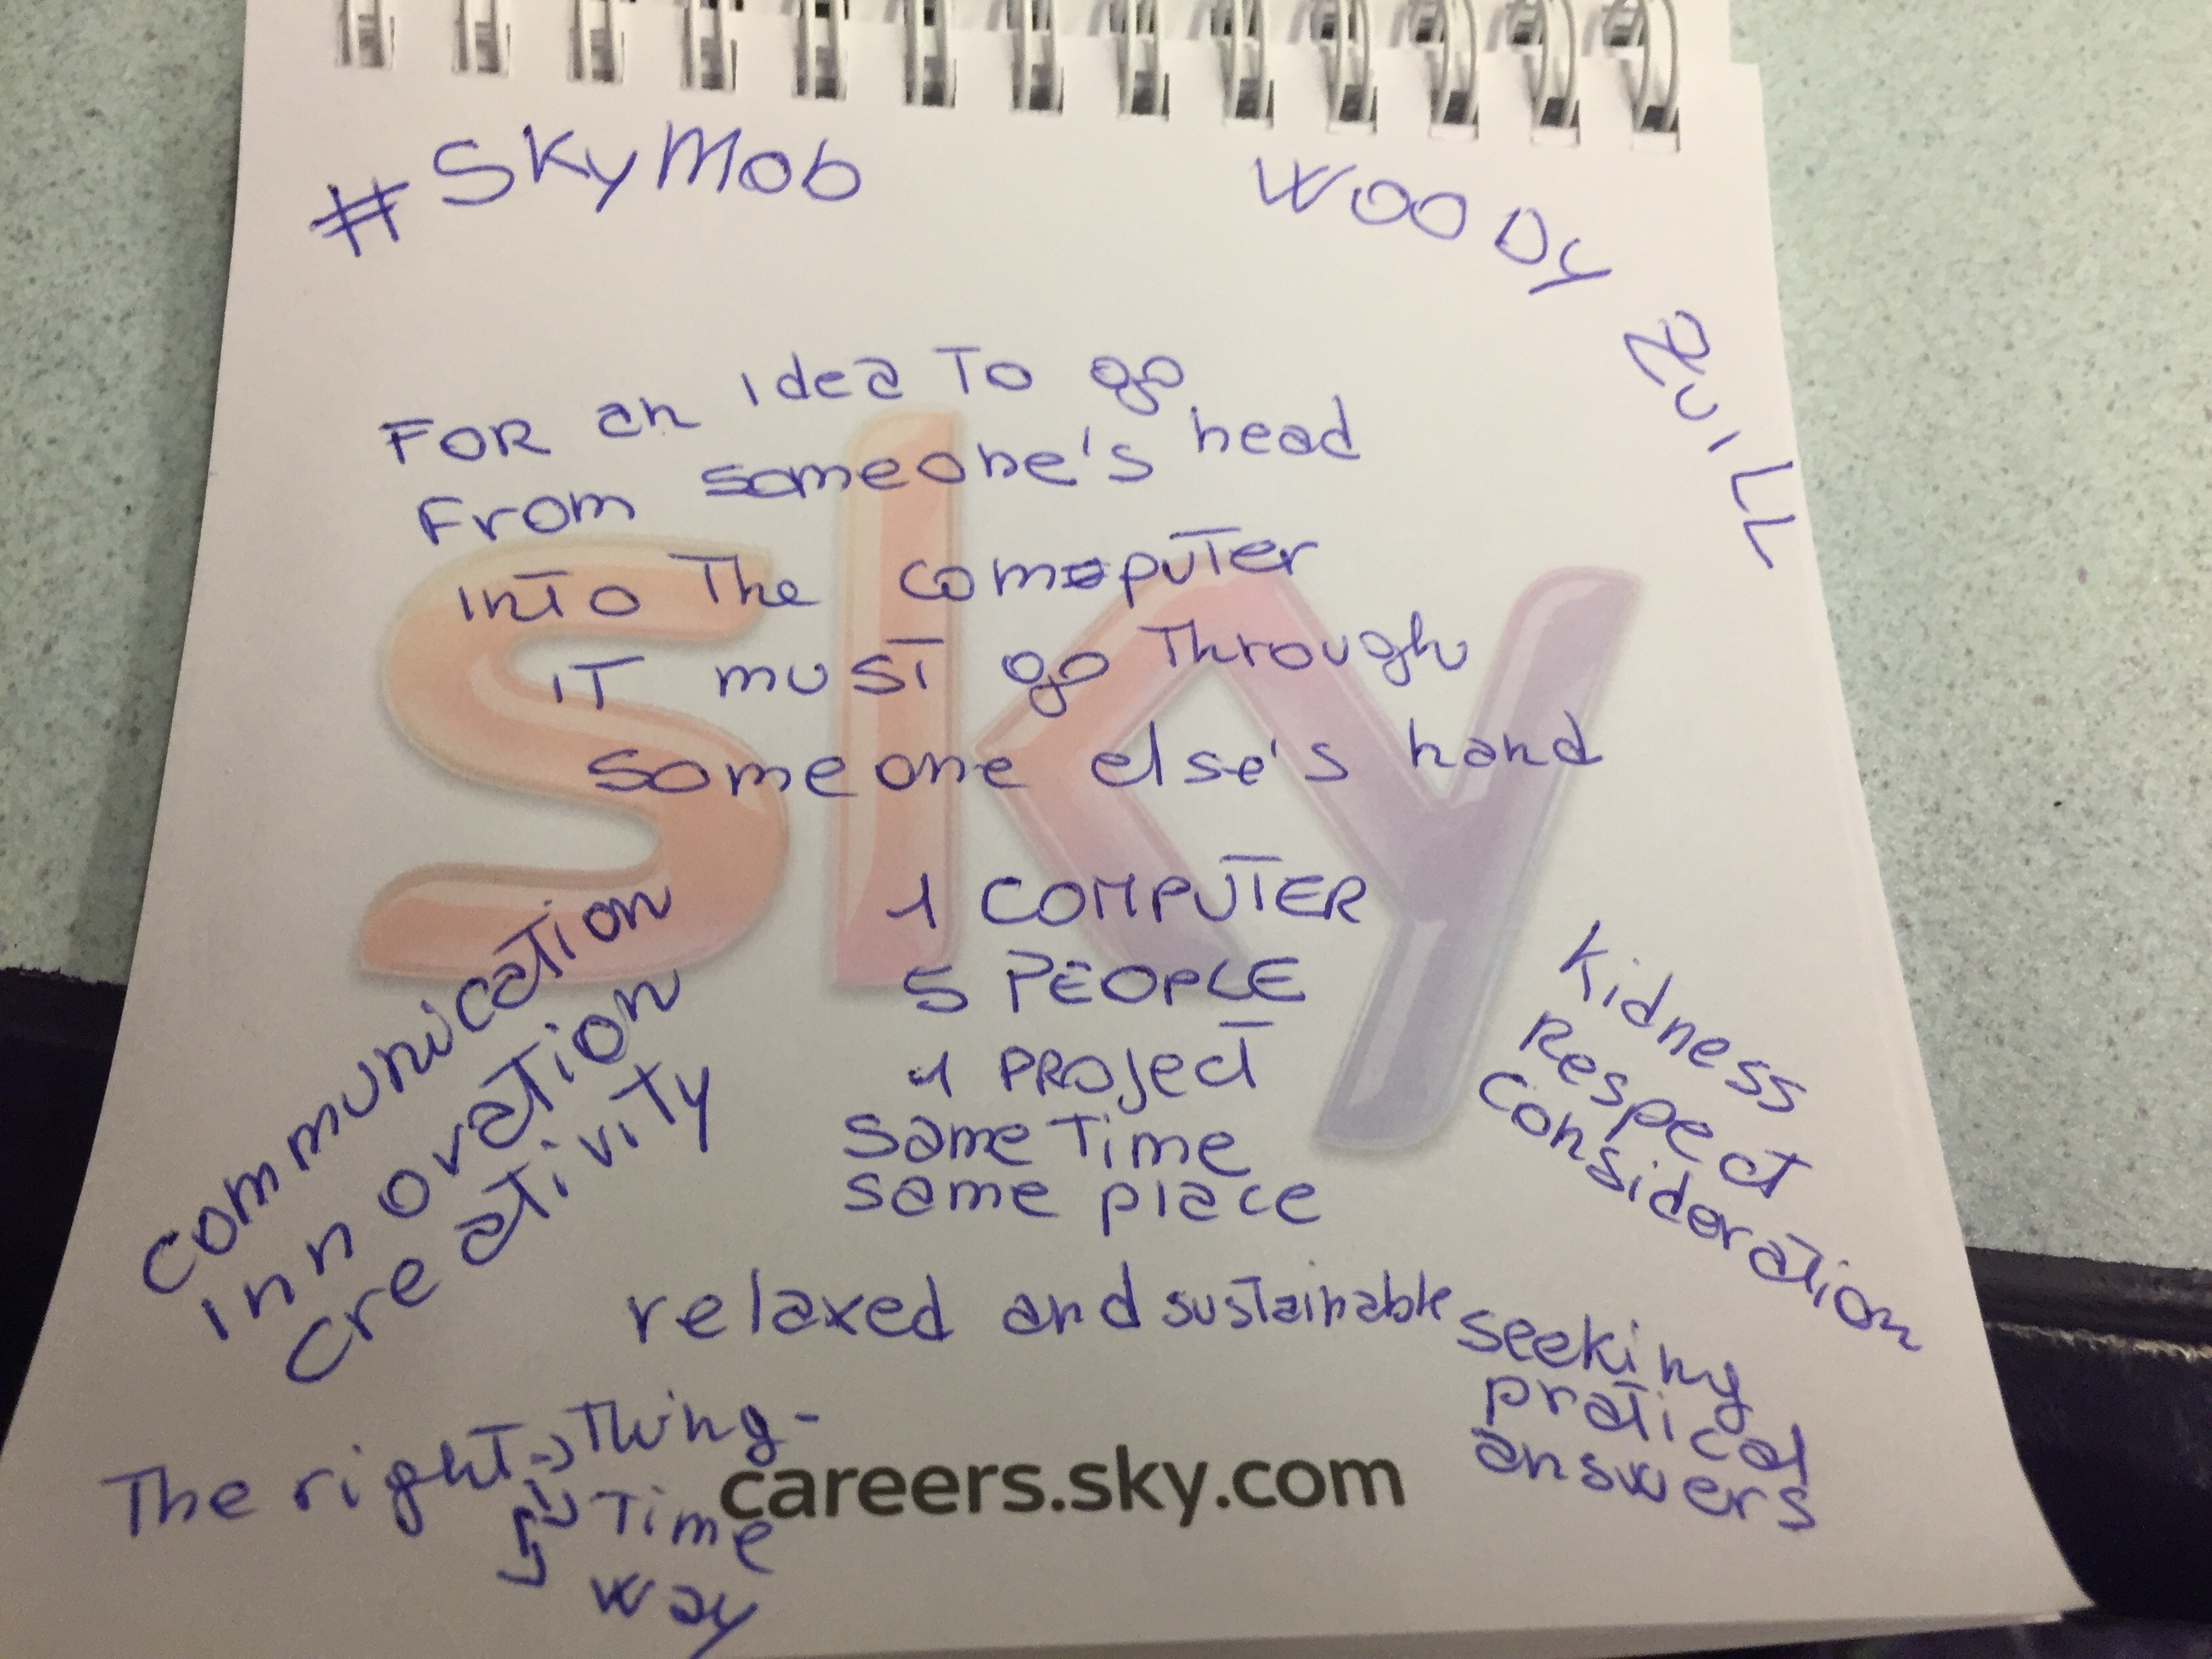 #SkyMob
WOODy ZUILL
FOR an idea To go
From someone's head
into The computer
iT must go Through
someone else's hand
sky
1 COMPUTER
5 PEOPLE
1 PROJecT
same Time
same place
communication
innovation
creativity
Kidness
Respect
Consideration
relaxed and sustainable
seeking
pratical
answers
The right → Thing -
Time
way
careers.sky.com